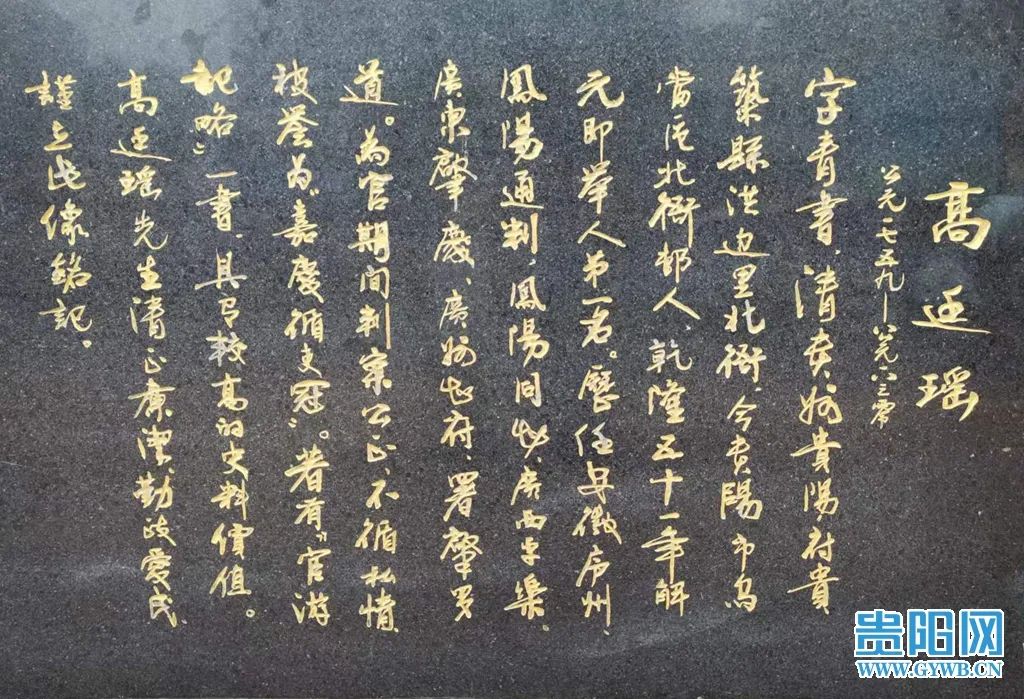 高廷瑶
公元一七五九—一八三零
字青書，清貴州貴陽府貴
築縣洪边里北衙，今贵陽市乌
當區北衙邨人，乾隆五十一年解
元即举人第一名。歷任安徽
鳳陽通判、鳳陽同知、廣西平樂、
廣東肇慶、廣州知府、署肇罗
道。为官期间判案公正，不循私情
被誉为“嘉慶循吏冠”。著有“官游
記略”一書，具有較高的史料價值。
高廷瑶先生清正廉潔、勤政愛民
謹立此像銘記。
贵阳网
WWW.GYWB.CN